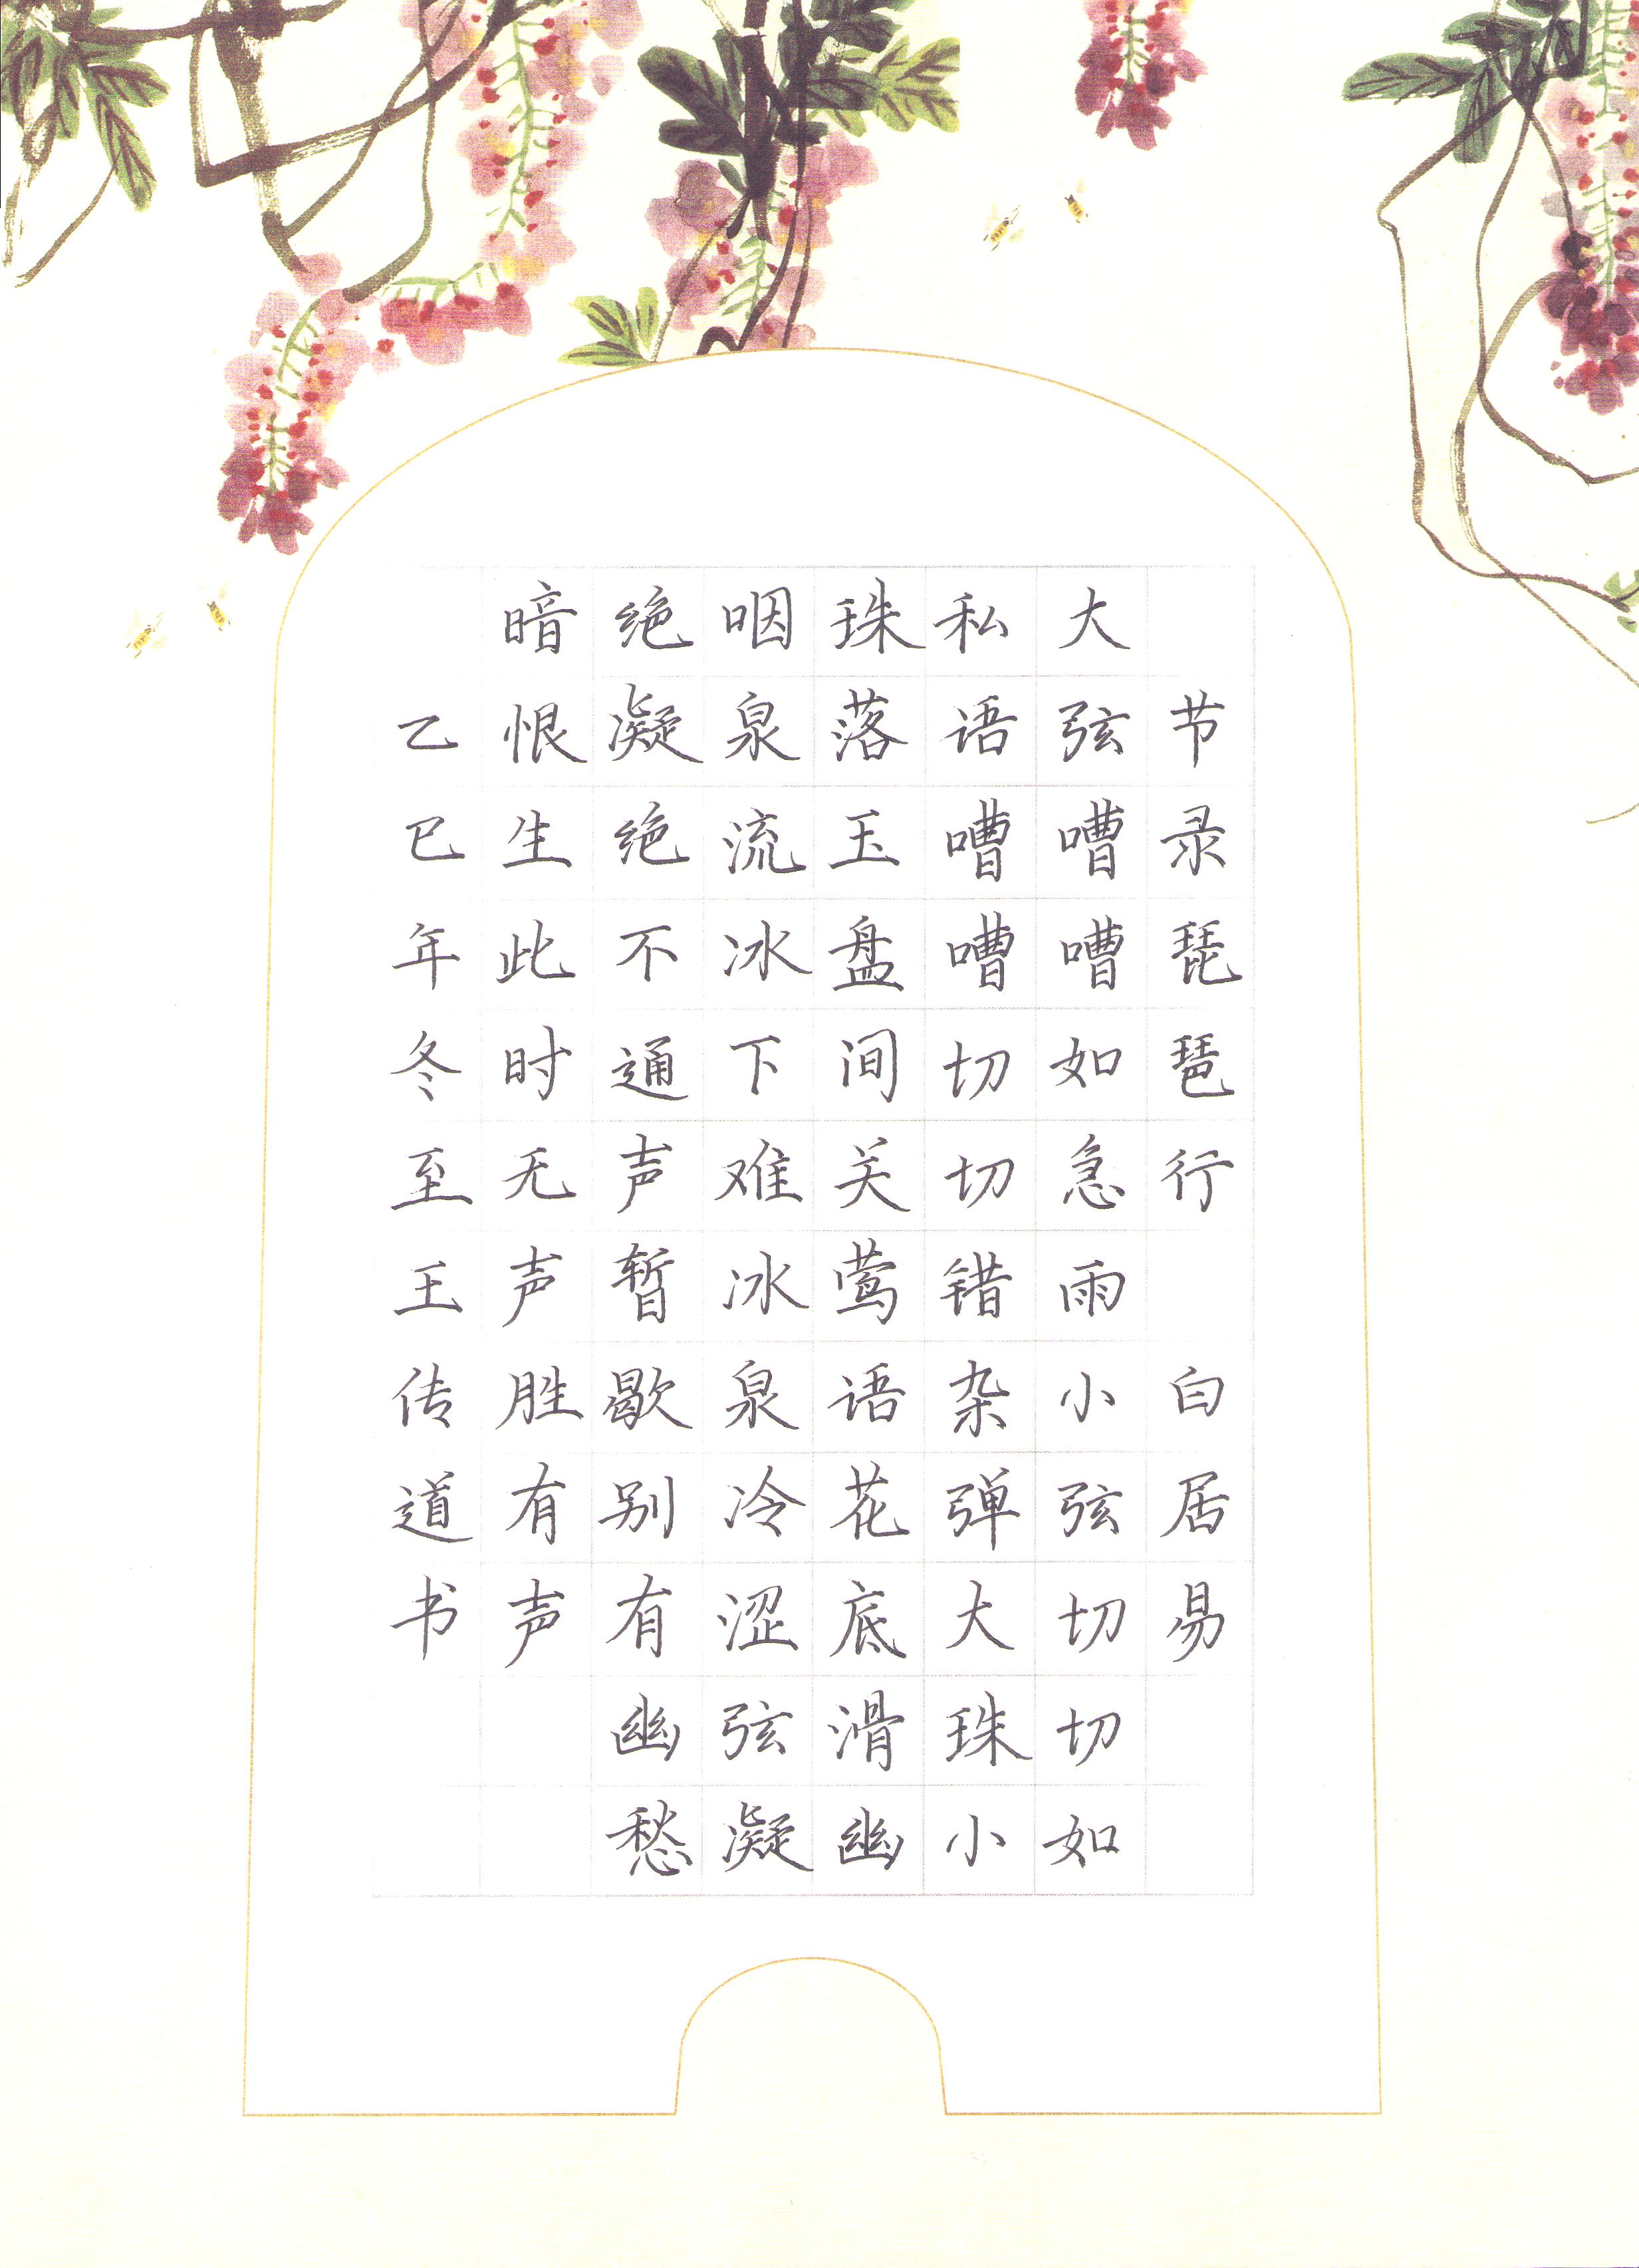 节录琵琶行 白居易
大弦嘈嘈如急雨小弦切切如
私语嘈嘈切切错杂弹大珠小
珠落玉盘间关莺语花底滑幽
咽泉流冰下难冰泉冷涩弦凝
绝凝绝不通声暂歇别有幽愁
暗恨生此时无声胜有声
乙巳年冬至王传道书